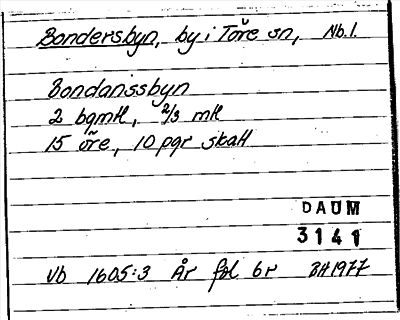 Bondersbyn, by i Töre sn, Nb.l.
Bondanssbyn
2 bgmtl, 2/3 mtl
15 öre, 10 pgr skatt
DAUM
3141
Vb 1605:3 År fol 6r BH1977